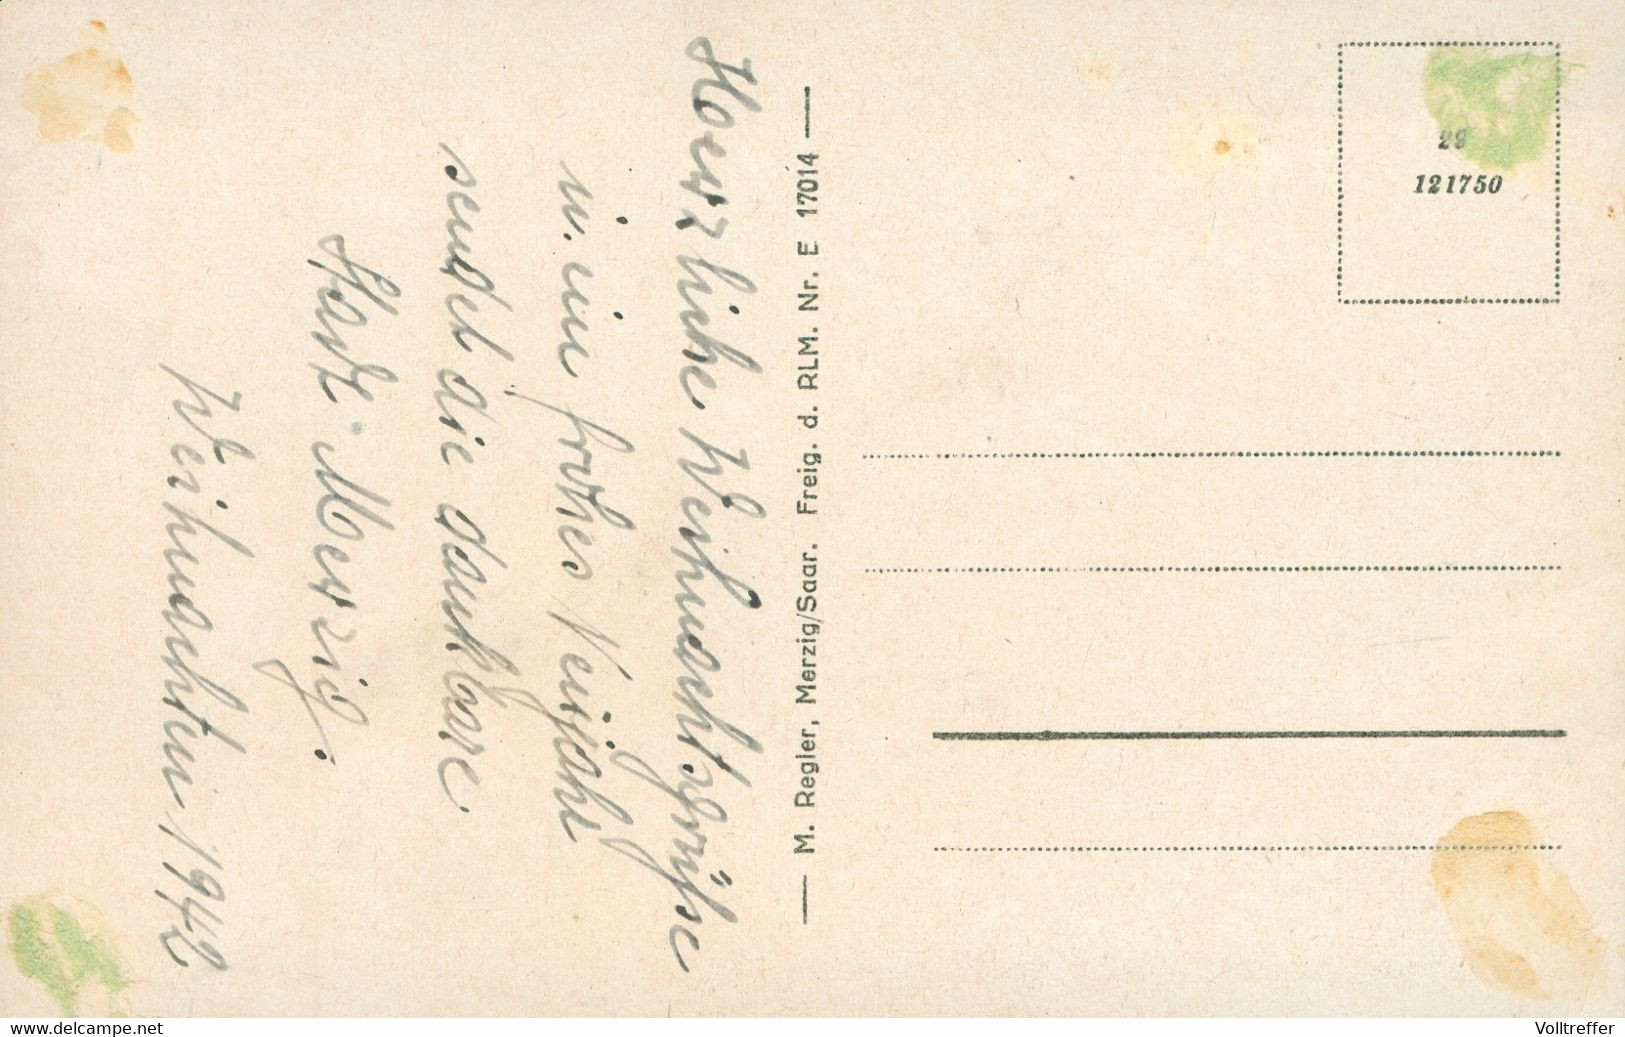 Herzliche Weihnachtsgrüsse
u. ein frohes Neujahr
sendet die dankbare
Stadt Merzig.
Weihnachten 1942
M. Regler, Merzig/Saar. Freig. d. RLM. Nr. E 17014
29
121750
www.delcampe.net
Volltreffer